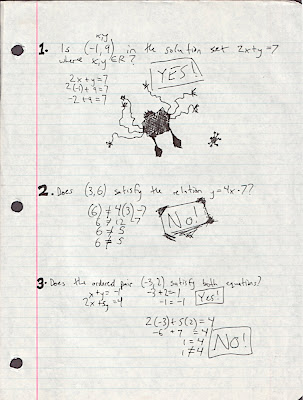 x,y
1. Is (-1, 9) in the solution set 2x+y=7
where x,y ∈ R?
YES!
2x+y=7
2(-1)+9=7
-2+9=7
2. Does (3,6) satisfy the relation y=4x-7?
(6) ≠ 4(3)-7
6 ≠ 12-7
6 ≠ 5
6 ≠ 5
No!
3. Does the ordered pair (-3,2) satisfy both equations?
x+y=-1 -3+2=-1 Yes!
2x+5y=4 -1=-1
2(-3)+5(2)=4
-6+7=4
1=4
1≠4
NO!